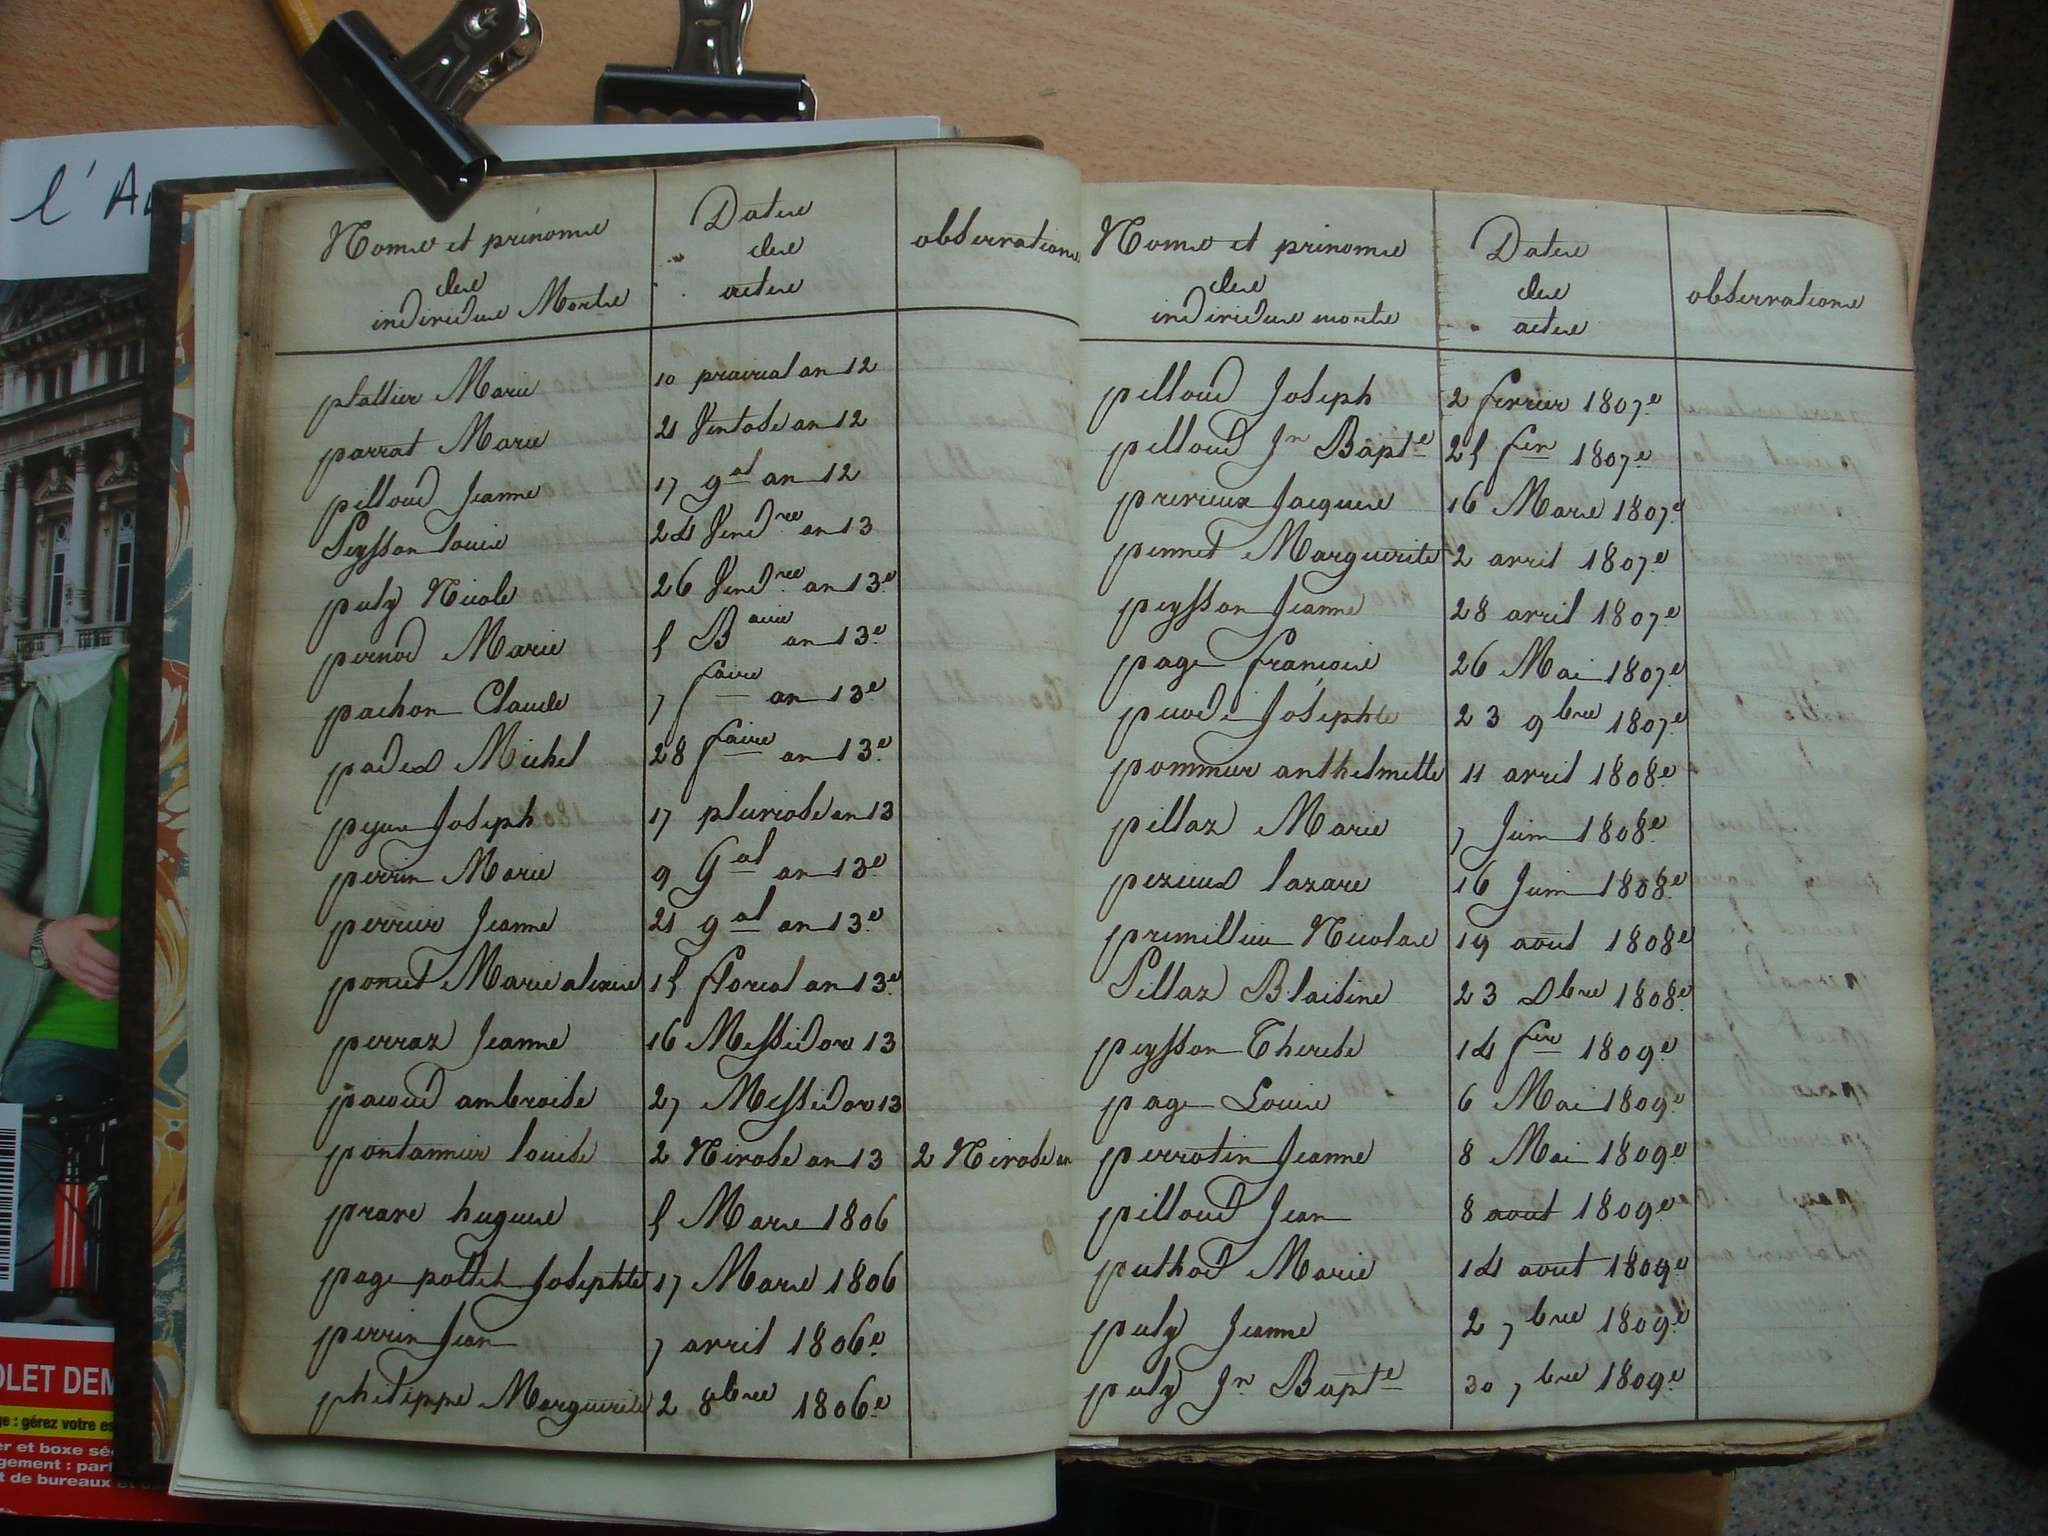 l'A
Noms et prénoms
des
individus Morts
Dates
des
actes
observations
plattier Marie 10 prairial an 12
parrat Marie 21 Ventose an 12
pilloud Jeanne 17 g.al an 12
Peysson louis 24 Vend.re an 13
puly Nicole 26 Vend.re an 13e
pernod Marie 5 B aire an 13e
pachon Claude 7 f aire an 13e
Michel 28 f aire an 13e
Joseph 17 pluviose an 13
perrin Marie 9 G al an 13e
perrier Jeanne 21 g al an 13e
poncet Marie alexise 15 floreal an 13e
perraz Jeanne 16 Messidor 13
pacoud ambroise 27 Messidor 13
pontannier louise 2 Nivose an 13 2 Nivose an
prave hugues 5 Mars 1806
page pottet Josephte 17 Mars 1806
perrin Jean 7 avril 1806e
philippe Marguerite 2 8bre 1806e
Noms et prénoms
des
individus morts
Dates
des
actes
observations
pilloud Joseph 2 fevrier 1807e
pilloud Jn Bapte 25 fer 1807e
previeux Jacques 16 Mars 1807e
pennet Marguerite 2 avril 1807e
peysson Jeanne 28 avril 1807e
page francois 26 Mai 1807e
Josephte 23 9bre 1807e
pommier anthelmette 11 avril 1808e
pillaz Marie 7 Juin 1808e
pezieux lazare 16 Juin 1808e
premillieu Nicolas 19 aout 1808e
Pillaz Blaisine 23 Dbre 1808e
peysson Therese 14 fer 1809e
page Louis 6 Mai 1809e
perrotin Jeanne 8 Mai 1809e
pilloud Jean 8 aout 1809e
puthod Marie 14 aout 1809e
puly Jeanne 2 7bre 1809e
puly Jn Bapte 30 7bre 1809e
OLET DEM
ge : gérez votre es
er et boxe sé
gement : par
t de bureaux et